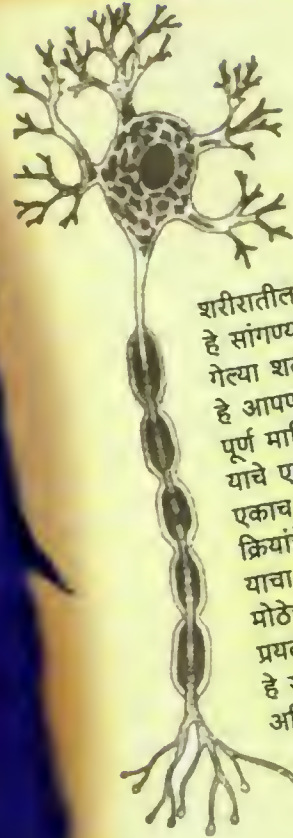 शरीरातील
हे सांगण्य
गेल्या शत
हे आपण
पूर्ण माहि
याचे ए
एकाच
क्रियां
याचा
मोठे
प्रयत
हे
अ